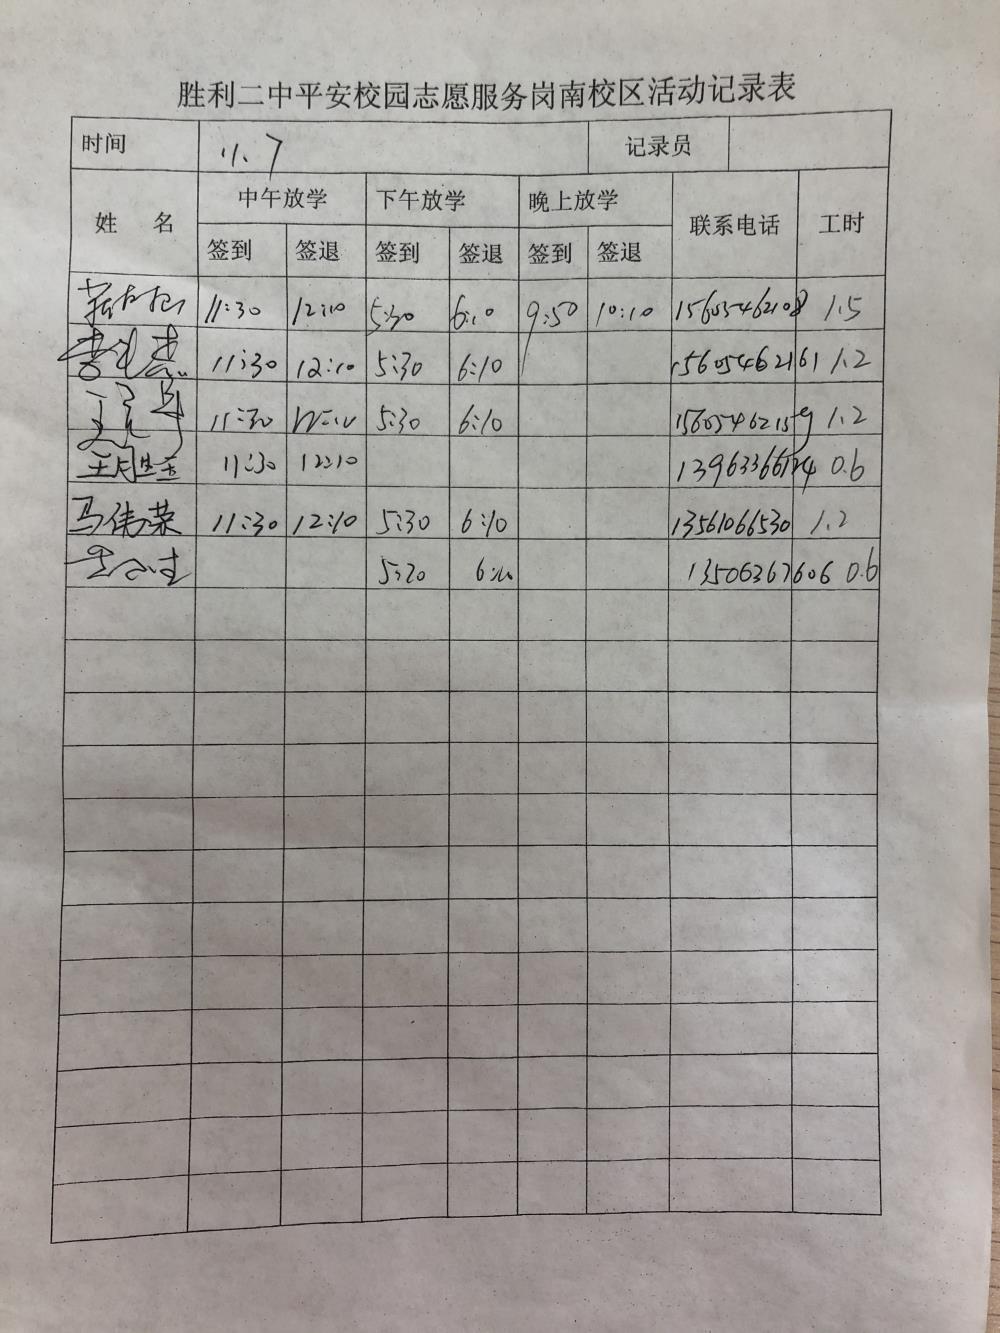 胜利二中平安校园志愿服务岗南校区活动记录表
时间 11.7 记录员
姓 名 中午放学 下午放学 晚上放学 联系电话 工时
签到 签退 签到 签退 签到 签退
11:30 12:10 5:30 6:10 9:50 10:10 15605462108 1.5
11:30 12:10 5:30 6:10 15605462161 1.2
11:30 12:10 5:30 6:10 15605462159 1.2
王胜玉 11:30 12:10 0.6
马伟荣 11:30 12:10 5:30 6:10 13561066530 1.2
6:10 13506367606 0.6